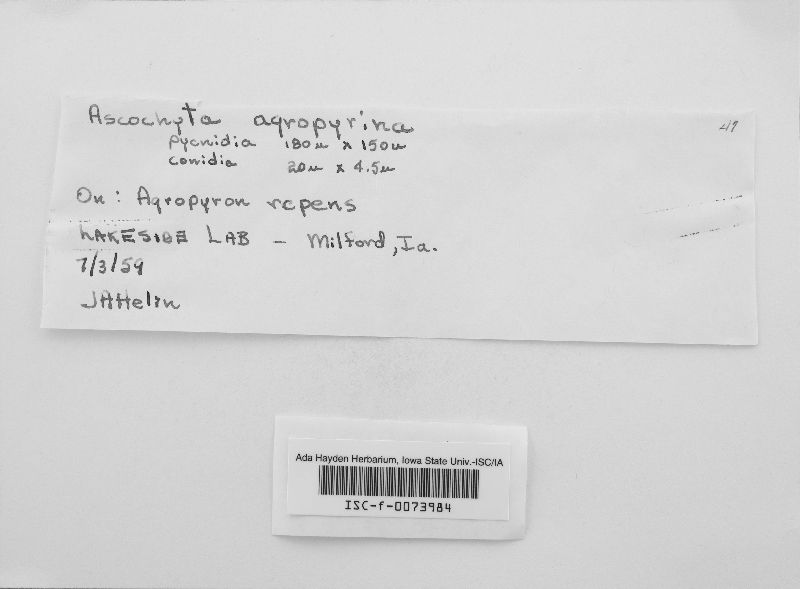 Ascochyta agropyrina
49
pycnidia 180µ x 150µ
conidia 20µ x 4.5µ
On: Agropyron repens
LAKESIDE LAB – Milford, Ia.
7/3/59
JAHelin
Ada Hayden Herbarium, Iowa State Univ.-ISC/IA
ISC-f-0073984